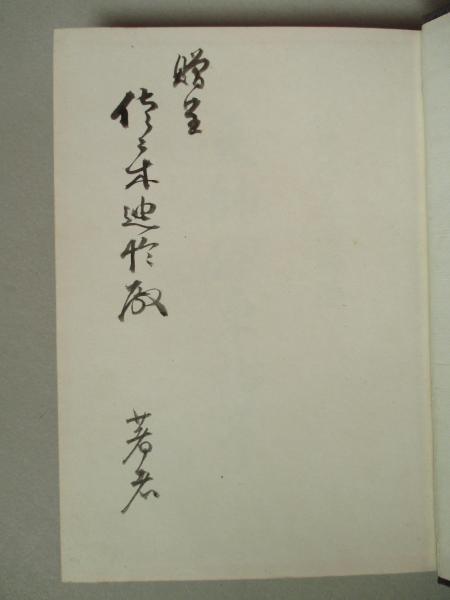 贈呈
佐々木迪怜殿
著者